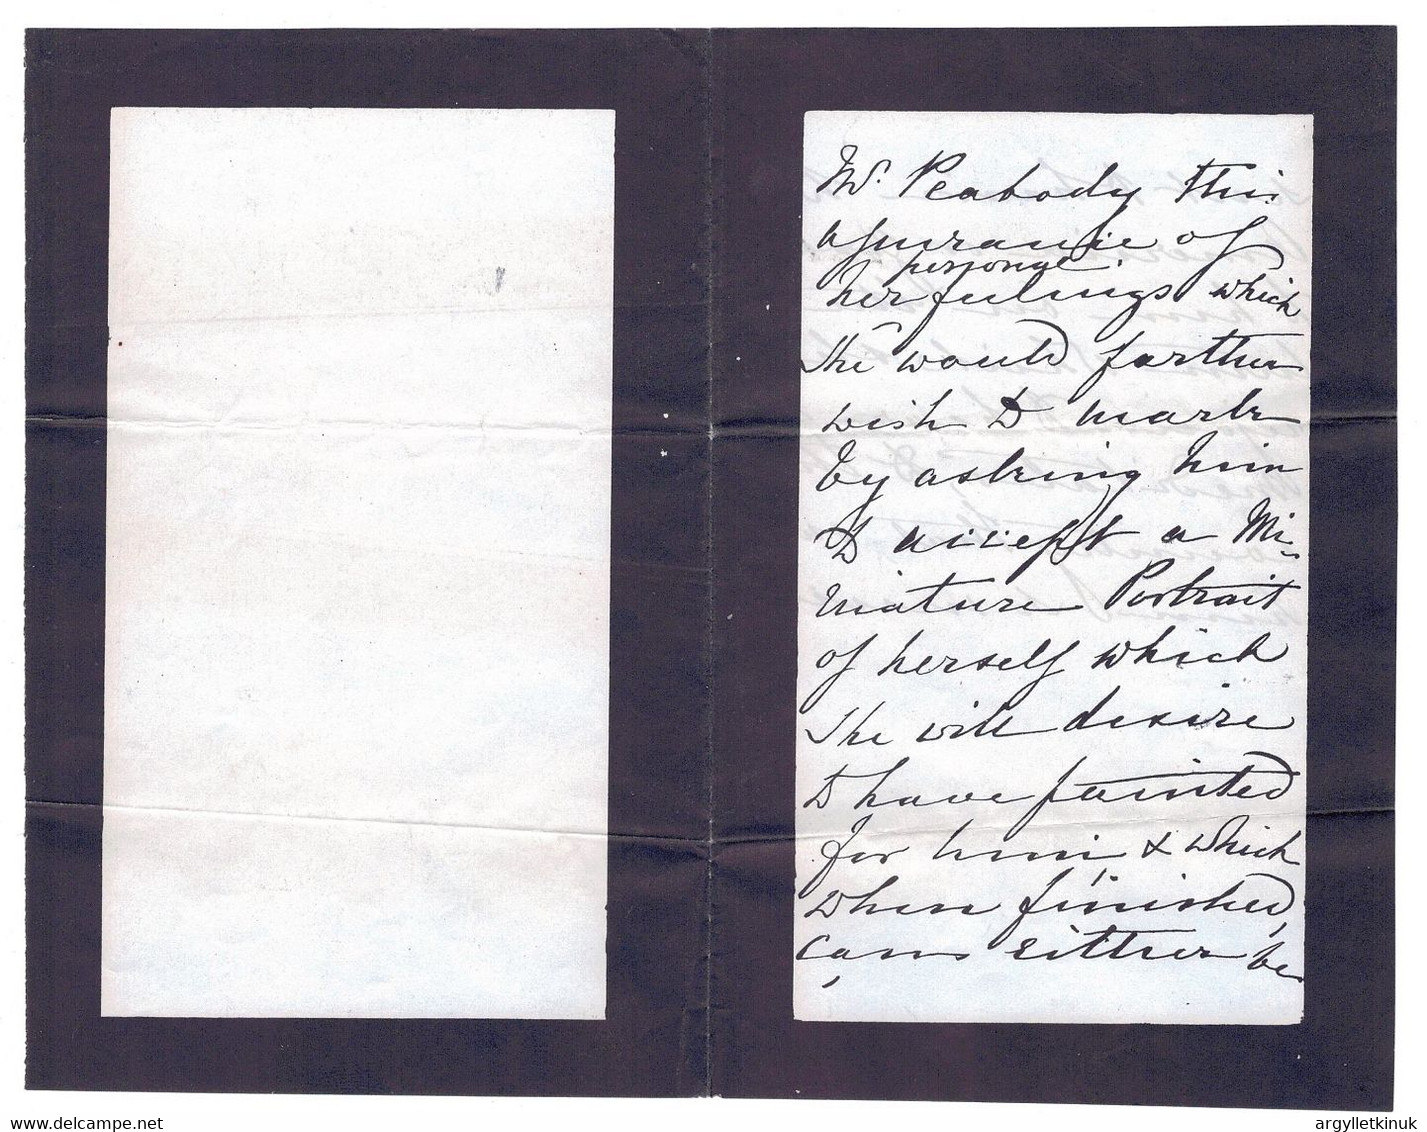 Mr. Peabody this
assurance of
personal
her feelings which
she would further
wish to mark
by asking him
to accept a Mi-
niature Portrait
of herself which
she will desire
to have painted
for him, & which
when finished,
can, either be
www.delcampe.net
argylletkinuk